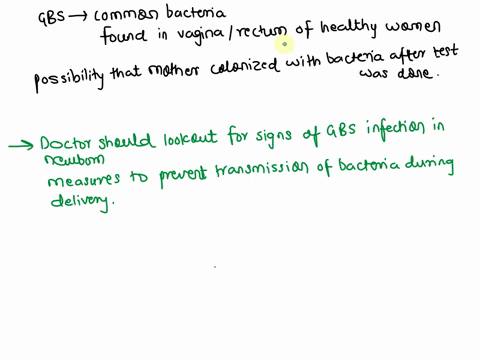 GBS → common bacteria
found in vagina/rectum of healthy women
possibility that mother colonized with bacteria after test
was done.
→ Doctor should lookout for signs of GBS infection in
newborn
measures to prevent transmission of bacteria during
delivery.